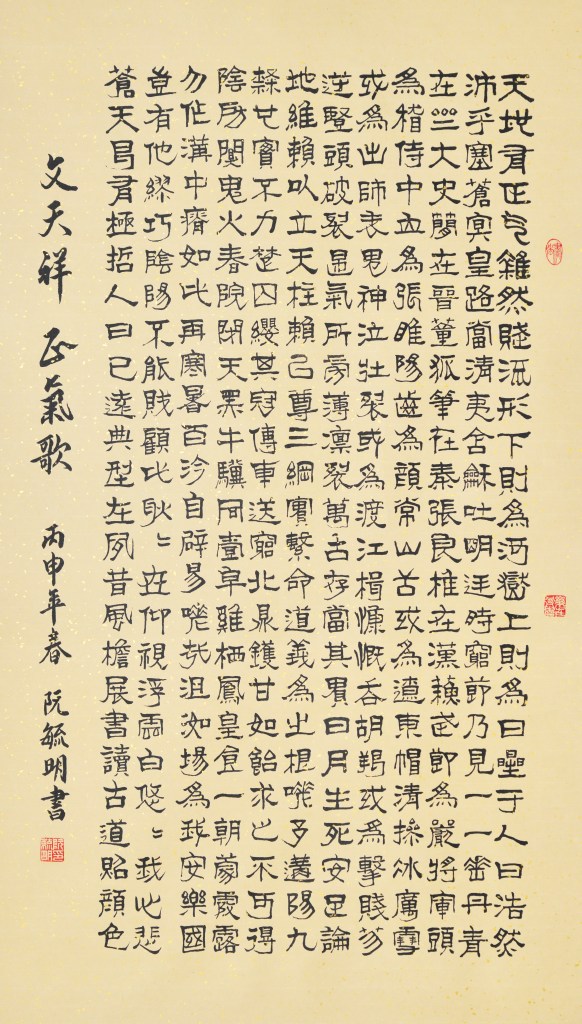 天地有正气雜然賦流形下則為河嶽上則為日曐于人曰浩然
沛乎塞蒼冥皇路當清夷含龢吐明廷時窮節乃見一一垂丹青
在亝大史簡在晉董狐筆在秦張良椎在漢蘇武節為嚴將軍頭
為稽侍中血為張睢陽齒為顏常山舌或為遼東帽清操冰厲雪
或為出師表鬼神泣壯裂或為渡江楫慷慨吞胡羯或為擊賊笏
逆豎頭破裂是氣所旁薄凜裂萬古存當其貫日月生死安足論
地維賴以立天柱賴以尊三綱實繫命道義為之根嗟予遘陽九
隸也實不力楚囚纓其冠傳車送窮北鼎鑊甘如飴求之不可得
陰房闃鬼火春院閉天黑牛驥同壹皁雞栖鳳皇食一朝蒙霧露
分作溝中瘠如此再寒暑百沴自辟易嗟哉沮洳場為我安樂國
豈有他繆巧陰陽不能賊顧此耿〻在仰視浮雲白悠〻我心悲
蒼天曷有極哲人日已遠典型在夙昔風檐展書讀古道照顏色
文天祥 正氣歌 丙申年春 阮毓明書